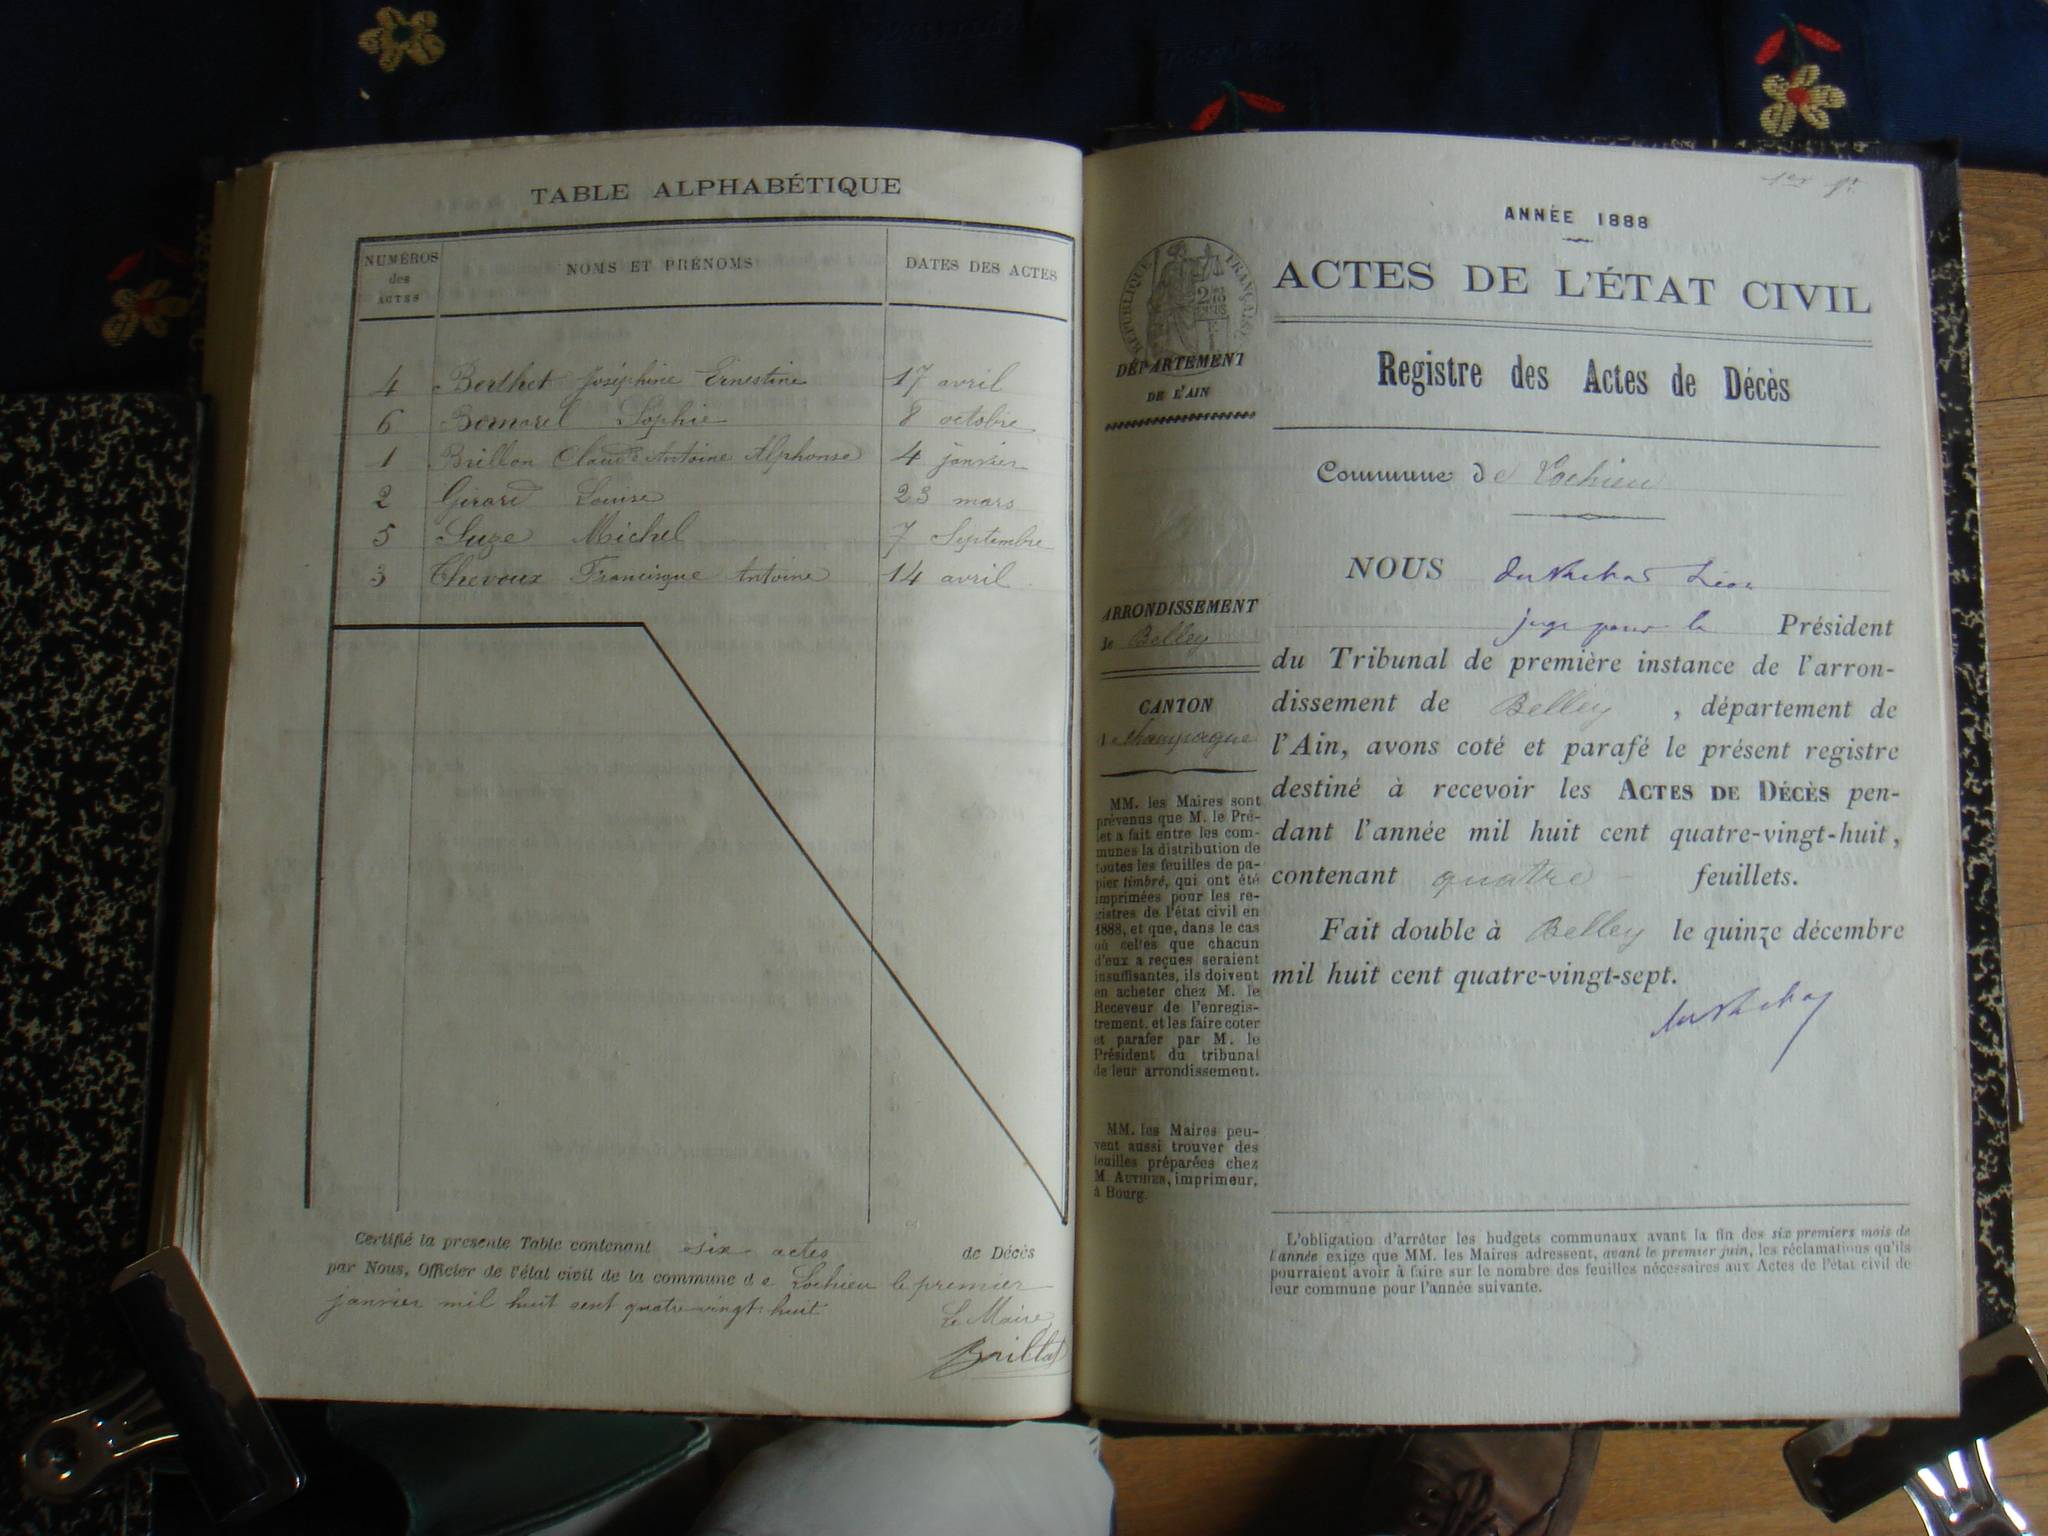 TABLE ALPHABÉTIQUE
NUMÉROS des ACTES
NOMS ET PRÉNOMS
DATES DES ACTES
4 Berthet Joséphine Ernestine 17 avril
6 Bomarel Sophie 8 octobre
1 Brillon Claude Antoine Alphonse 4 janvier
2 Girard Louise 23 mars
5 Suze Michel 7 Septembre
3 Thevoux Francisque Antoine 14 avril
Certifié la présente Table contenant six actes de Décès
par Nous, Officier de l'état civil de la commune de Lochieu le premier
janvier mil huit cent quatre-vingt-huit
Le Maire
Brillat
1er
ANNÉE 1888
ACTES DE L'ÉTAT CIVIL
Registre des Actes de Décès
Commune de Lochieu
NOUS Léon
juge pour le Président
du Tribunal de première instance de l'arron-
dissement de Belley, département de
l'Ain, avons coté et parafé le présent registre
destiné à recevoir les ACTES DE DÉCÈS pen-
dant l'année mil huit cent quatre-vingt-huit,
contenant quatre feuillets.
Fait double à Belley le quinze décembre
mil huit cent quatre-vingt-sept.
RÉPUBLIQUE FRANÇAISE
DÉPARTEMENT
DE L'AIN
ARRONDISSEMENT
de Belley
CANTON
de Champagne
MM. les Maires sont
prévenus que M. le Pré-
fet a fait entre les com-
munes la distribution de
toutes les feuilles de pa-
pier timbré, qui ont été
imprimées pour les re-
gistres de l'état civil en
1888, et que, dans le cas
où celles que chacun
d'eux a reçues seraient
insuffisantes, ils doivent
en acheter chez M. le
Receveur de l'enregis-
trement, et les faire coter
et parafer par M. le
Président du tribunal
de leur arrondissement.
MM. les Maires peu-
vent aussi trouver des
feuilles préparées chez
M. AUTHIER, imprimeur,
à Bourg.
L'obligation d'arrêter les budgets communaux avant la fin des six premiers mois de
l'année exige que MM. les Maires adressent, avant le premier juin, les réclamations qu'ils
pourraient avoir à faire sur le nombre des feuilles nécessaires aux Actes de l'état civil de
leur commune pour l'année suivante.